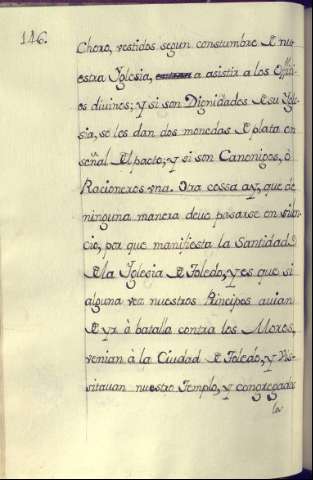 146.
Choro, vestidos segun constumbre de nu-
estra Yglesia, a asistir a los Offici-
os divinos; y si son Dignidades de su Ygle-
sia, se les dan dos monedas de plata en
señal del pacto; y si son Canonigos, ò
Racioneros vna. Otra cossa ay, que de
ninguna manera deue pasarse en silen-
cio, por que manifiesta la Santidad
de la Yglesia de Toledo, y es que si
alguna vez nuestros Principes auian
de yr à batalla contra los Moros,
venian à la Ciudad de Toledo, y Vis-
sitauan nuestro Templo, y congregada
la